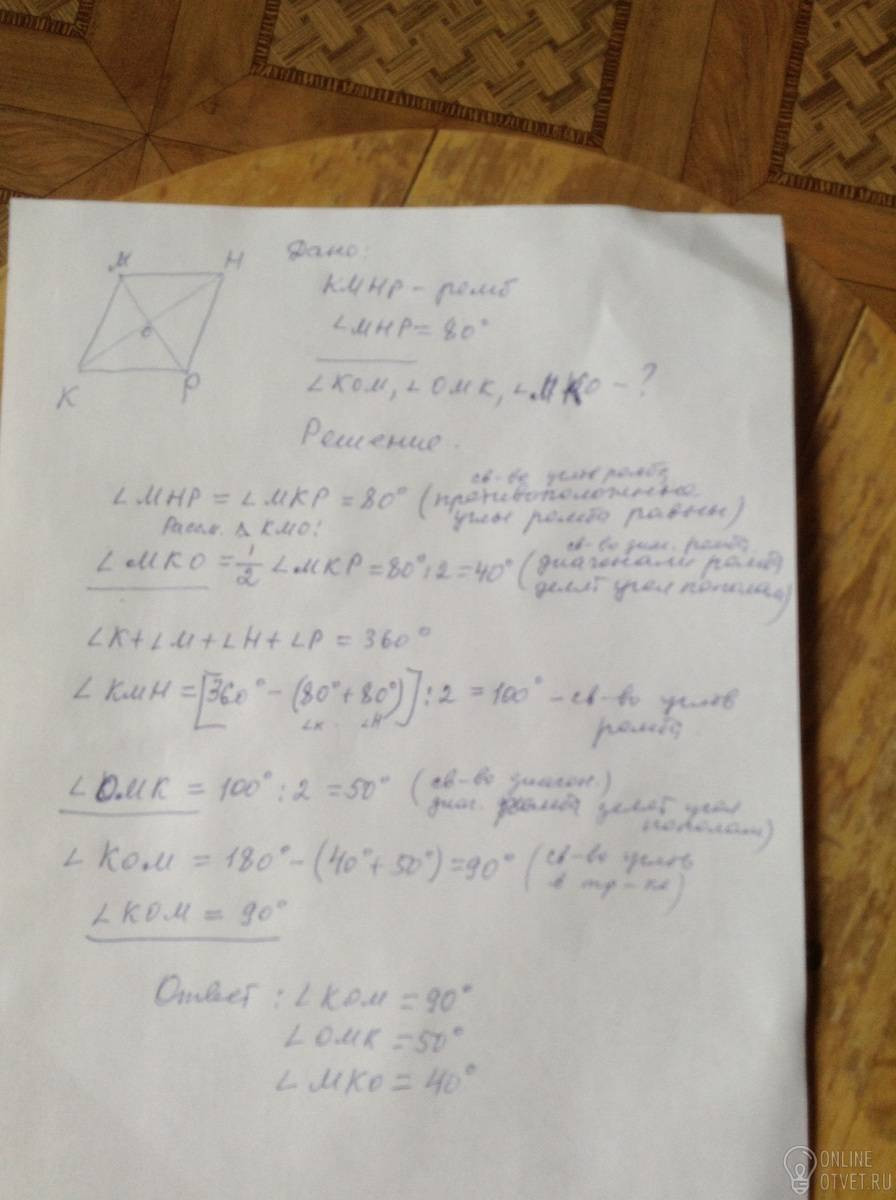 М Н
О
К Р
Дано:
КМНР - ромб
∠МНР = 80°
∠КОМ, ∠ОМК, ∠МКО - ?
Решение.
св-во углов ромба
∠МНР = ∠МКР = 80° (противоположные
углы ромба равны)
Рассм. Δ КМО:
св-во диаг. ромба
∠МКО = 1/2 ∠МКР = 80° : 2 = 40° (диагонали ромба
делят угол пополам)
∠К + ∠М + ∠Н + ∠Р = 360°
∠КМН = [360° - (80° + 80°)] : 2 = 100° - св-во углов
∠К ∠Н
ромба
∠ОМК = 100° : 2 = 50° (св-во диагон.)
диаг. ромба делят угол
пополам)
∠КОМ = 180° - (40° + 50°) = 90° (св-во углов
в тр-ке)
∠КОМ = 90°
Ответ: ∠КОМ = 90°
∠ОМК = 50°
∠МКО = 40°
ONLINE
OTVET.RU